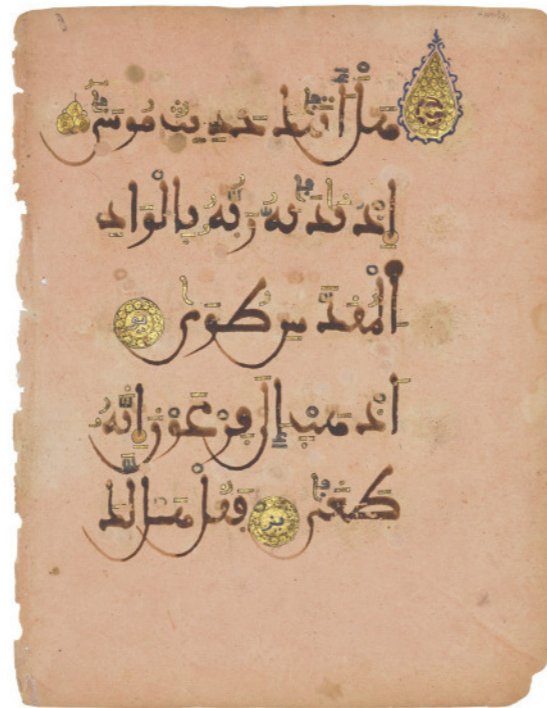 هَلْ أَتَىٰكَ حَدِيثُ مُوسَىٰ
إِذْ نَادَىٰهُ رَبُّهُ بِالْوَادِ
الْمُقَدَّسِ طُوًى يو
اذْهَبْ إِلَىٰ فِرْعَوْنَ إِنَّهُ
طَغَىٰ يز فَقُلْ هَل لَّكَ